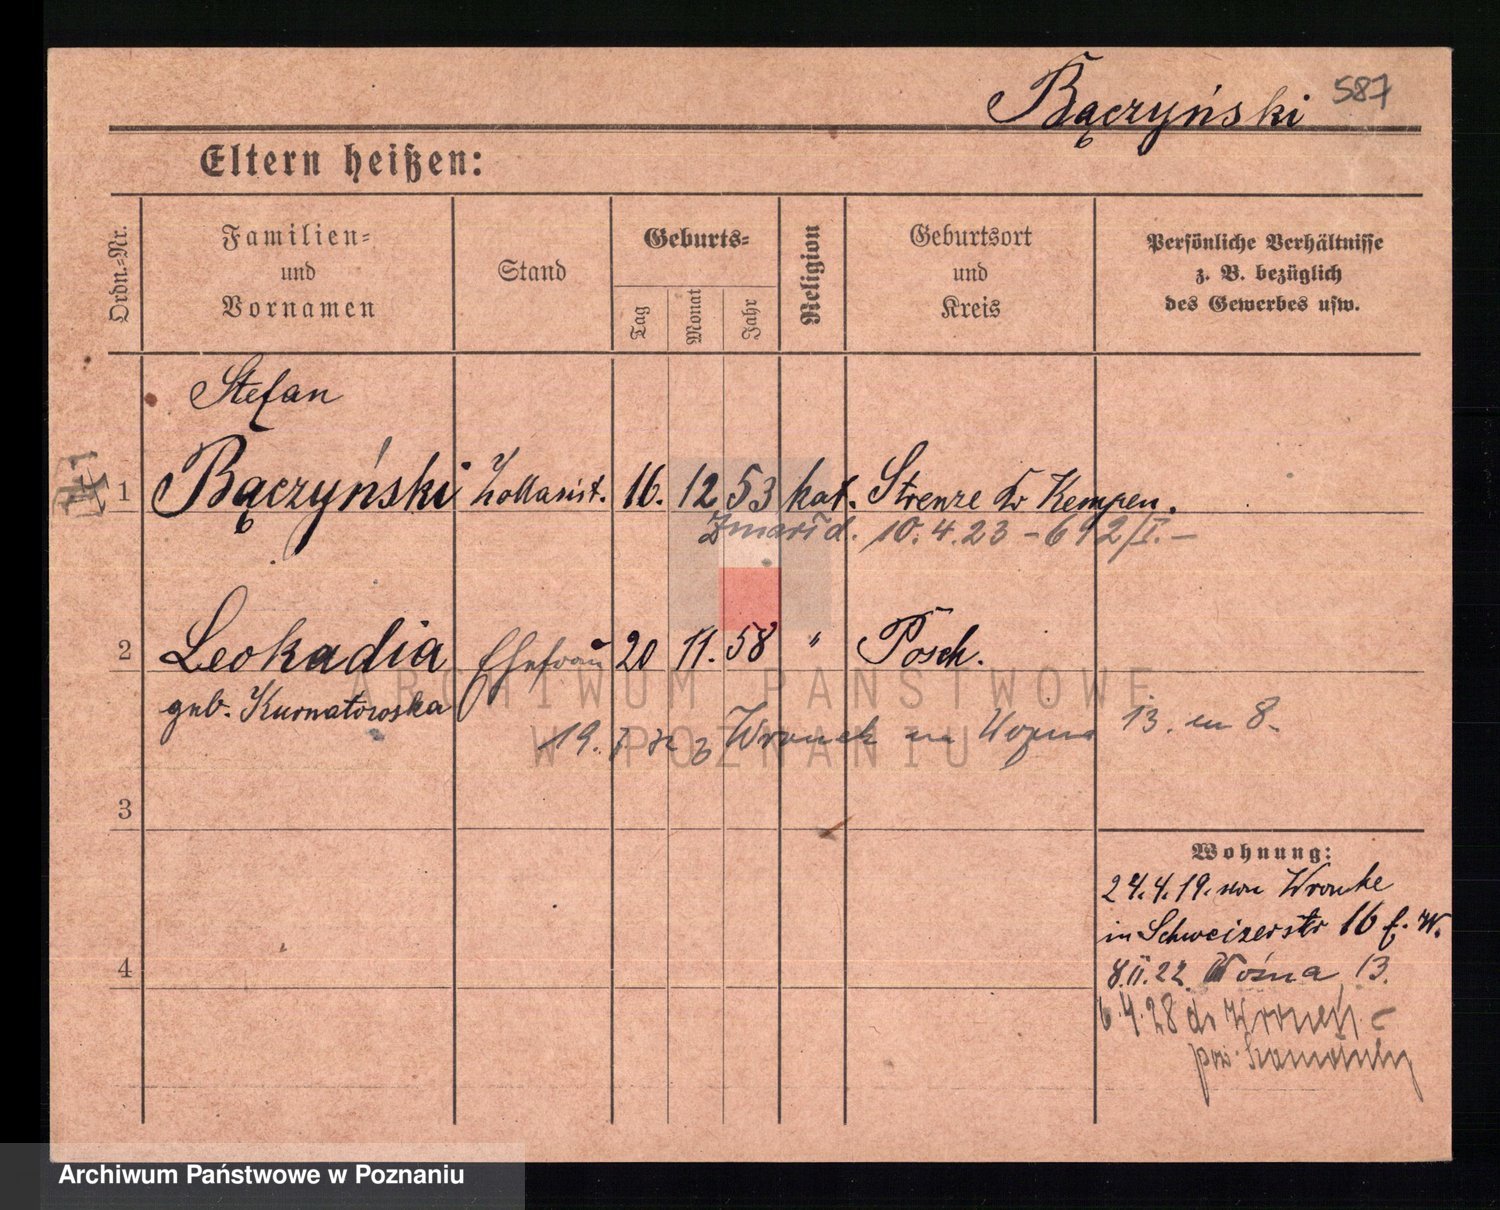 Bączyński 587
Eltern heißen:
Ordn.-Nr.
Familien-
und
Vornamen
Stand
Geburts-
Tag
Monat
Jahr
Religion
Geburtsort
und
Kreis
Persönliche Verhältnisse
z. B. bezüglich
des Gewerbes usw.
Stefan
1 Bączyński Zollassist. 16. 12 53 kat. Strenze Kr Kempen.
Zmarł d. 10.4.23 - 692/I. -
2 Leokadia Ehefrau 20 11. 58 " Posch.
geb. Kurnatowska
19. z Wronek na Woźna 13. m 8.
3
4
Wohnung:
24.4.19. von Wronke
in Schweizerstr 16 f. W.
8.II.22 Woźna 13.
6.4.28 do Wronek
pow. Szamotuły
ARCHIWUM PAŃSTWOWE
W POZNANIU
Archiwum Państwowe w Poznaniu